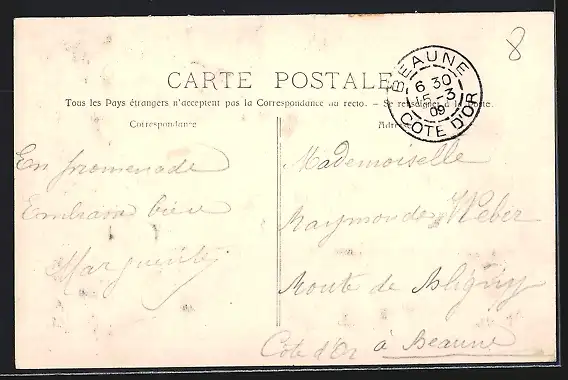 8
CARTE POSTALE
Tous les Pays étrangers n'acceptent pas la Correspondance au recto. – Se renseigner à la Poste.
Correspondance
BEAUNE
6 30
15-3
09
COTE D'OR
En promenade
bien
Marguerite
Mademoiselle
Raymonde Weber
Route de Bligny
Cote d'Or à Beaune